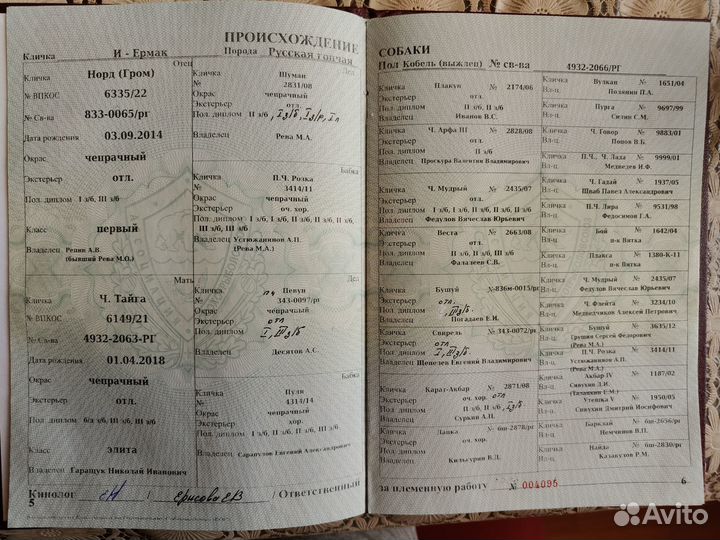 ПРОИСХОЖДЕНИЕ
Кличка И - Ермак Порода Русская гончая
Отец
Кличка Норд (Гром)
№ ВПКОС 6335/22
№ Св-ва 833-0065/рг
Дата рождения 03.09.2014
Окрас чепрачный
Экстерьер отл.
Пол. диплом I з/б, II з/б, III з/б
Класс первый
Владелец Репин А.В.
(бывший Рева М.О.)
Мать
Кличка Ч. Тайга
№ ВПКОС 6149/21
№ Св-ва 4932-2063-РГ
Дата рождения 01.04.2018
Окрас чепрачный
Экстерьер отл.
Пол. диплом б/л з/б, III з/б
Класс элита
Владелец Гаращук Николай Иванович
Дед
Кличка Шуман
№ 2831/08
Окрас чепрачный
Экстерьер отл.
Пол. диплом II з/б,
Владелец Рева М.А.
Бабка
Кличка П.Ч. Розка
№ 3414/11
Окрас чепрачный
Экстерьер оч. хор.
Пол. диплом I з/б, II з/б, II з/б, II з/б,
III з/б, III з/б
Владелец Устюжанинов А.П.
(Рева М.А.)
Дед
Кличка пч Певун
№ 343-0097/рг
Окрас чепрачный
Экстерьер отл
Пол. диплом I, III з/б
Владелец Десятов А.С.
Бабка
Кличка Пуля
№ 4314/14
Окрас чепрачный
Экстерьер хор.
Пол. диплом I з/б, II з/б, III з/б
Владелец Сарапулов Евгений Александрович
Кинолог / Ерисова Е В / Ответственный
5
СОБАКИ
Пол Кобель (выжлец) № св-ва 4932-2066/РГ
Кличка Плакун № 2174/06
Экстерьер отл.
Пол. диплом II з/б, II з/б
Владелец Иванов В.С.
Кличка Ч. Арфа III № 2828/08
Экстерьер отл.
Пол. диплом II з/б
Владелец Проскура Валентин Владимирович
Кличка Ч. Мудрый № 2435/07
Экстерьер отл.
Пол. диплом I з/б, I з/б, II з/б, II з/б, II з/б
Владелец Федулов Вячеслав Юрьевич
Кличка Веста № 2663/08
Экстерьер отл.
Пол. диплом II з/б, III з/б
Владелец Фалалеев С.В.
Кличка Бушуй № 836н-0015/рг
Экстерьер отл.
Пол. диплом III з/б
Владелец Погадаев Е.И.
Кличка Свирель № 343-0072/рг
Экстерьер отл
Пол. диплом I, II з/б
Владелец Шепелев Евгений Владимирович
Кличка Карат-Акбар № 2871/08
Экстерьер оч. хор. отл
Пол. диплом II з/б, II з/б,
Владелец Суркин А.П.
Кличка Лашка № 6ш-2878/рг
Экстерьер оч. хор.
Пол. диплом
Владелец Кильгурин В.Д.
Кличка Вулкан № 1651/04
Вл-ц. Полянин П.А.
Кличка Пурга № 9697/99
Вл-ц. Ситин С.М.
Кличка Ч. Говор № 9883/01
Вл-ц. Попов В.Б.
Кличка П.Ч., Ч. Лада № 9999/01
Вл-ц. Медведев И.Ф.
Кличка Ч. Гадай № 1937/05
Вл-ц. Шваб Павел Александрович
Кличка П.Ч. Лира № 9531/98
Вл-ц. Федосимов Г.А.
Кличка Бой № 1642/04
Вл-ц. п-к Вятка
Кличка Плакса № 1380-К-11
Вл-ц. п-к Вятка
Кличка Ч. Мудрый № 2435/07
Вл-ц. Федулов Вячеслав Юрьевич
Кличка Ч. Флейта № 3234/10
Вл-ц. Медведчиков Алексей Петрович
Кличка Бушуй № 3635/12
Вл-ц. Грушин Сергей Федорович
(Рева М.А.)
Кличка П.Ч. Розка № 3414/11
Вл-ц. Устюжанинов А.П.
(Рева М.А.)
Кличка Акбар IV № 1187/02
Вл-ц. Сивухин Д.И.
Кличка Утешка V № 1950/05
Вл-ц. Сивухин Дмитрий Иосифович
Кличка Барклай № 6ш-2656/рг
Вл-ц. Немчинов В.П.
Кличка Найда № 6ш-2830/рг
Вл-ц. Казакузов Р.М.
за племенную работу № 004095
6
Avito